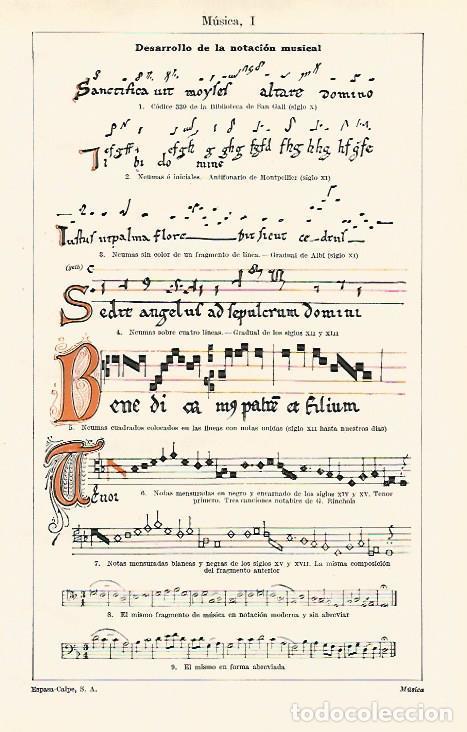 Música, I
Desarrollo de la notación musical
Sanctificavit moyses altare domino
1. Códice 339 de la Biblioteca de San Gall (siglo X)
Tibi do mine
2. Neumas é iniciales. Antifonario de Montpellier (siglo XI)
Iustus ut palma flore bit sicut ce drus
3. Neumas sin color de un fragmento de línea. — Gradual de Albi (siglo XI)
C
Sedit angelus ad sepulcrum domini
4. Neumas sobre cuatro líneas. — Gradual de los siglos XII y XIII
Bene di ca mus patrem et Filium
5. Neumas cuadrados colocados en las líneas con notas unidas (siglo XII hasta nuestros días)
Tenor
6. Notas mensuradas en negro y encarnado de los siglos XIV y XV. Tenor
primero. Tres canciones notables de G. Binchois
7. Notas mensuradas blancas y negras de los siglos XV y XVII. La misma composición
del fragmento anterior
8. El mismo fragmento de música en notación moderna y sin abreviar
9. El mismo en forma abreviada
Espasa-Calpe, S. A.
Música
todocoleccion